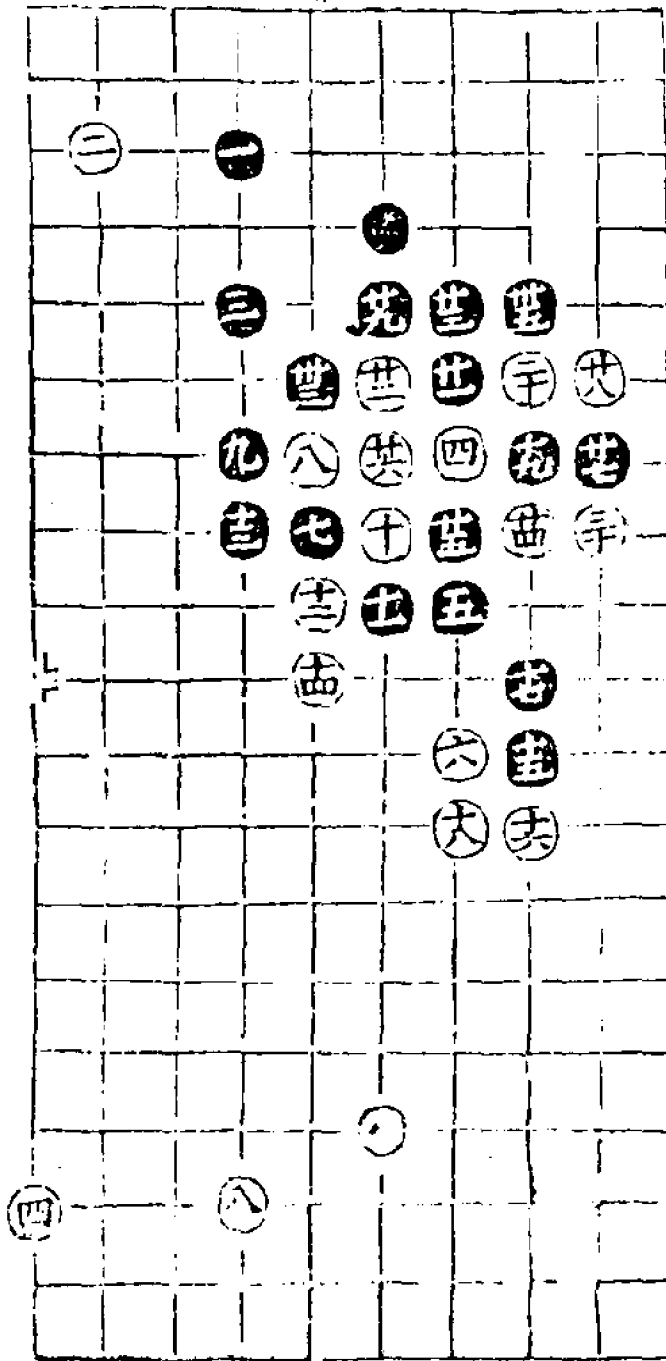 二 一
三 廿九 廿三 卅五
卅三 廿二 廿一 二十 廿八
九 八 廿六 四 十九 廿七
十三 七 十 廿五 廿四 三十
十二 十一 五
十四 十七
六 十五
十八 十六
四 八